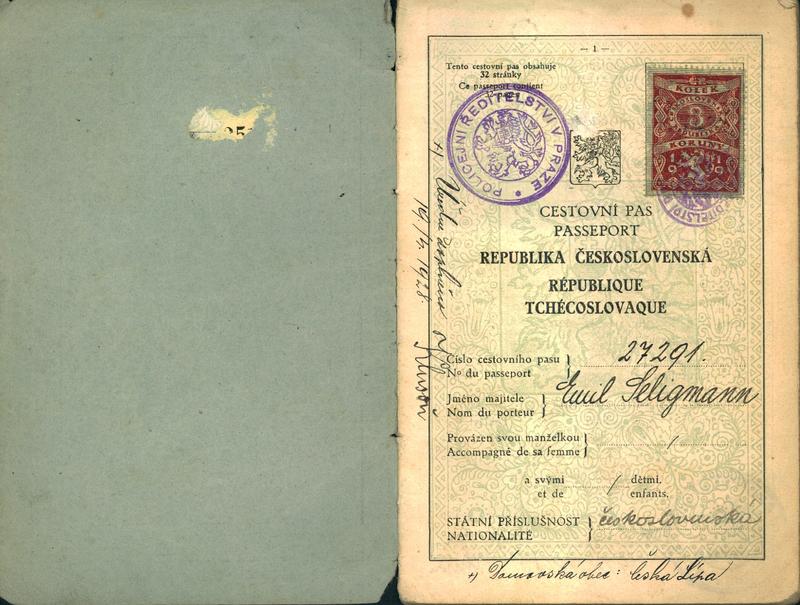 25
— 1 —
Tento cestovní pas obsahuje
32 stránky
Ce passeport contient
POLICEJNÍ ŘEDITELSTVÍ V PRAZE
KOLEK
5
KORUNY
1919
ŘEDITELSTVÍ
CESTOVNÍ PAS
PASSEPORT
REPUBLIKA ČESKOSLOVENSKÁ
RÉPUBLIQUE
TCHÉCOSLOVAQUE
Číslo cestovního pasu
No du passeport } 27291.
Jméno majitele
Nom du porteur } Emil Seligmann
Provázen svou manželkou
Accompagné de sa femme } /
a svými / dětmi.
et de enfants.
STÁTNÍ PŘÍSLUŠNOST
NATIONALITÉ } československá
+) Domovská obec: Česká Lípa
+) Úředně doplněno
1928